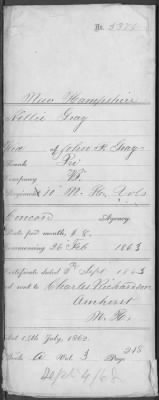 No. 5375
New Hampshire
Nellie Gray
of John H. Gray
Rank Pri
Company "B"
Regiment 10" N. H. Vols
Concord Agency
Rate per month, $ 8.
Commencing 26 Feb 1863
Certificate dated 5" Sept 1863
and sent to Charles Richardson
Amherst
N. H.
Act 14th July, 1862.
Book A Vol. 3 Page 218